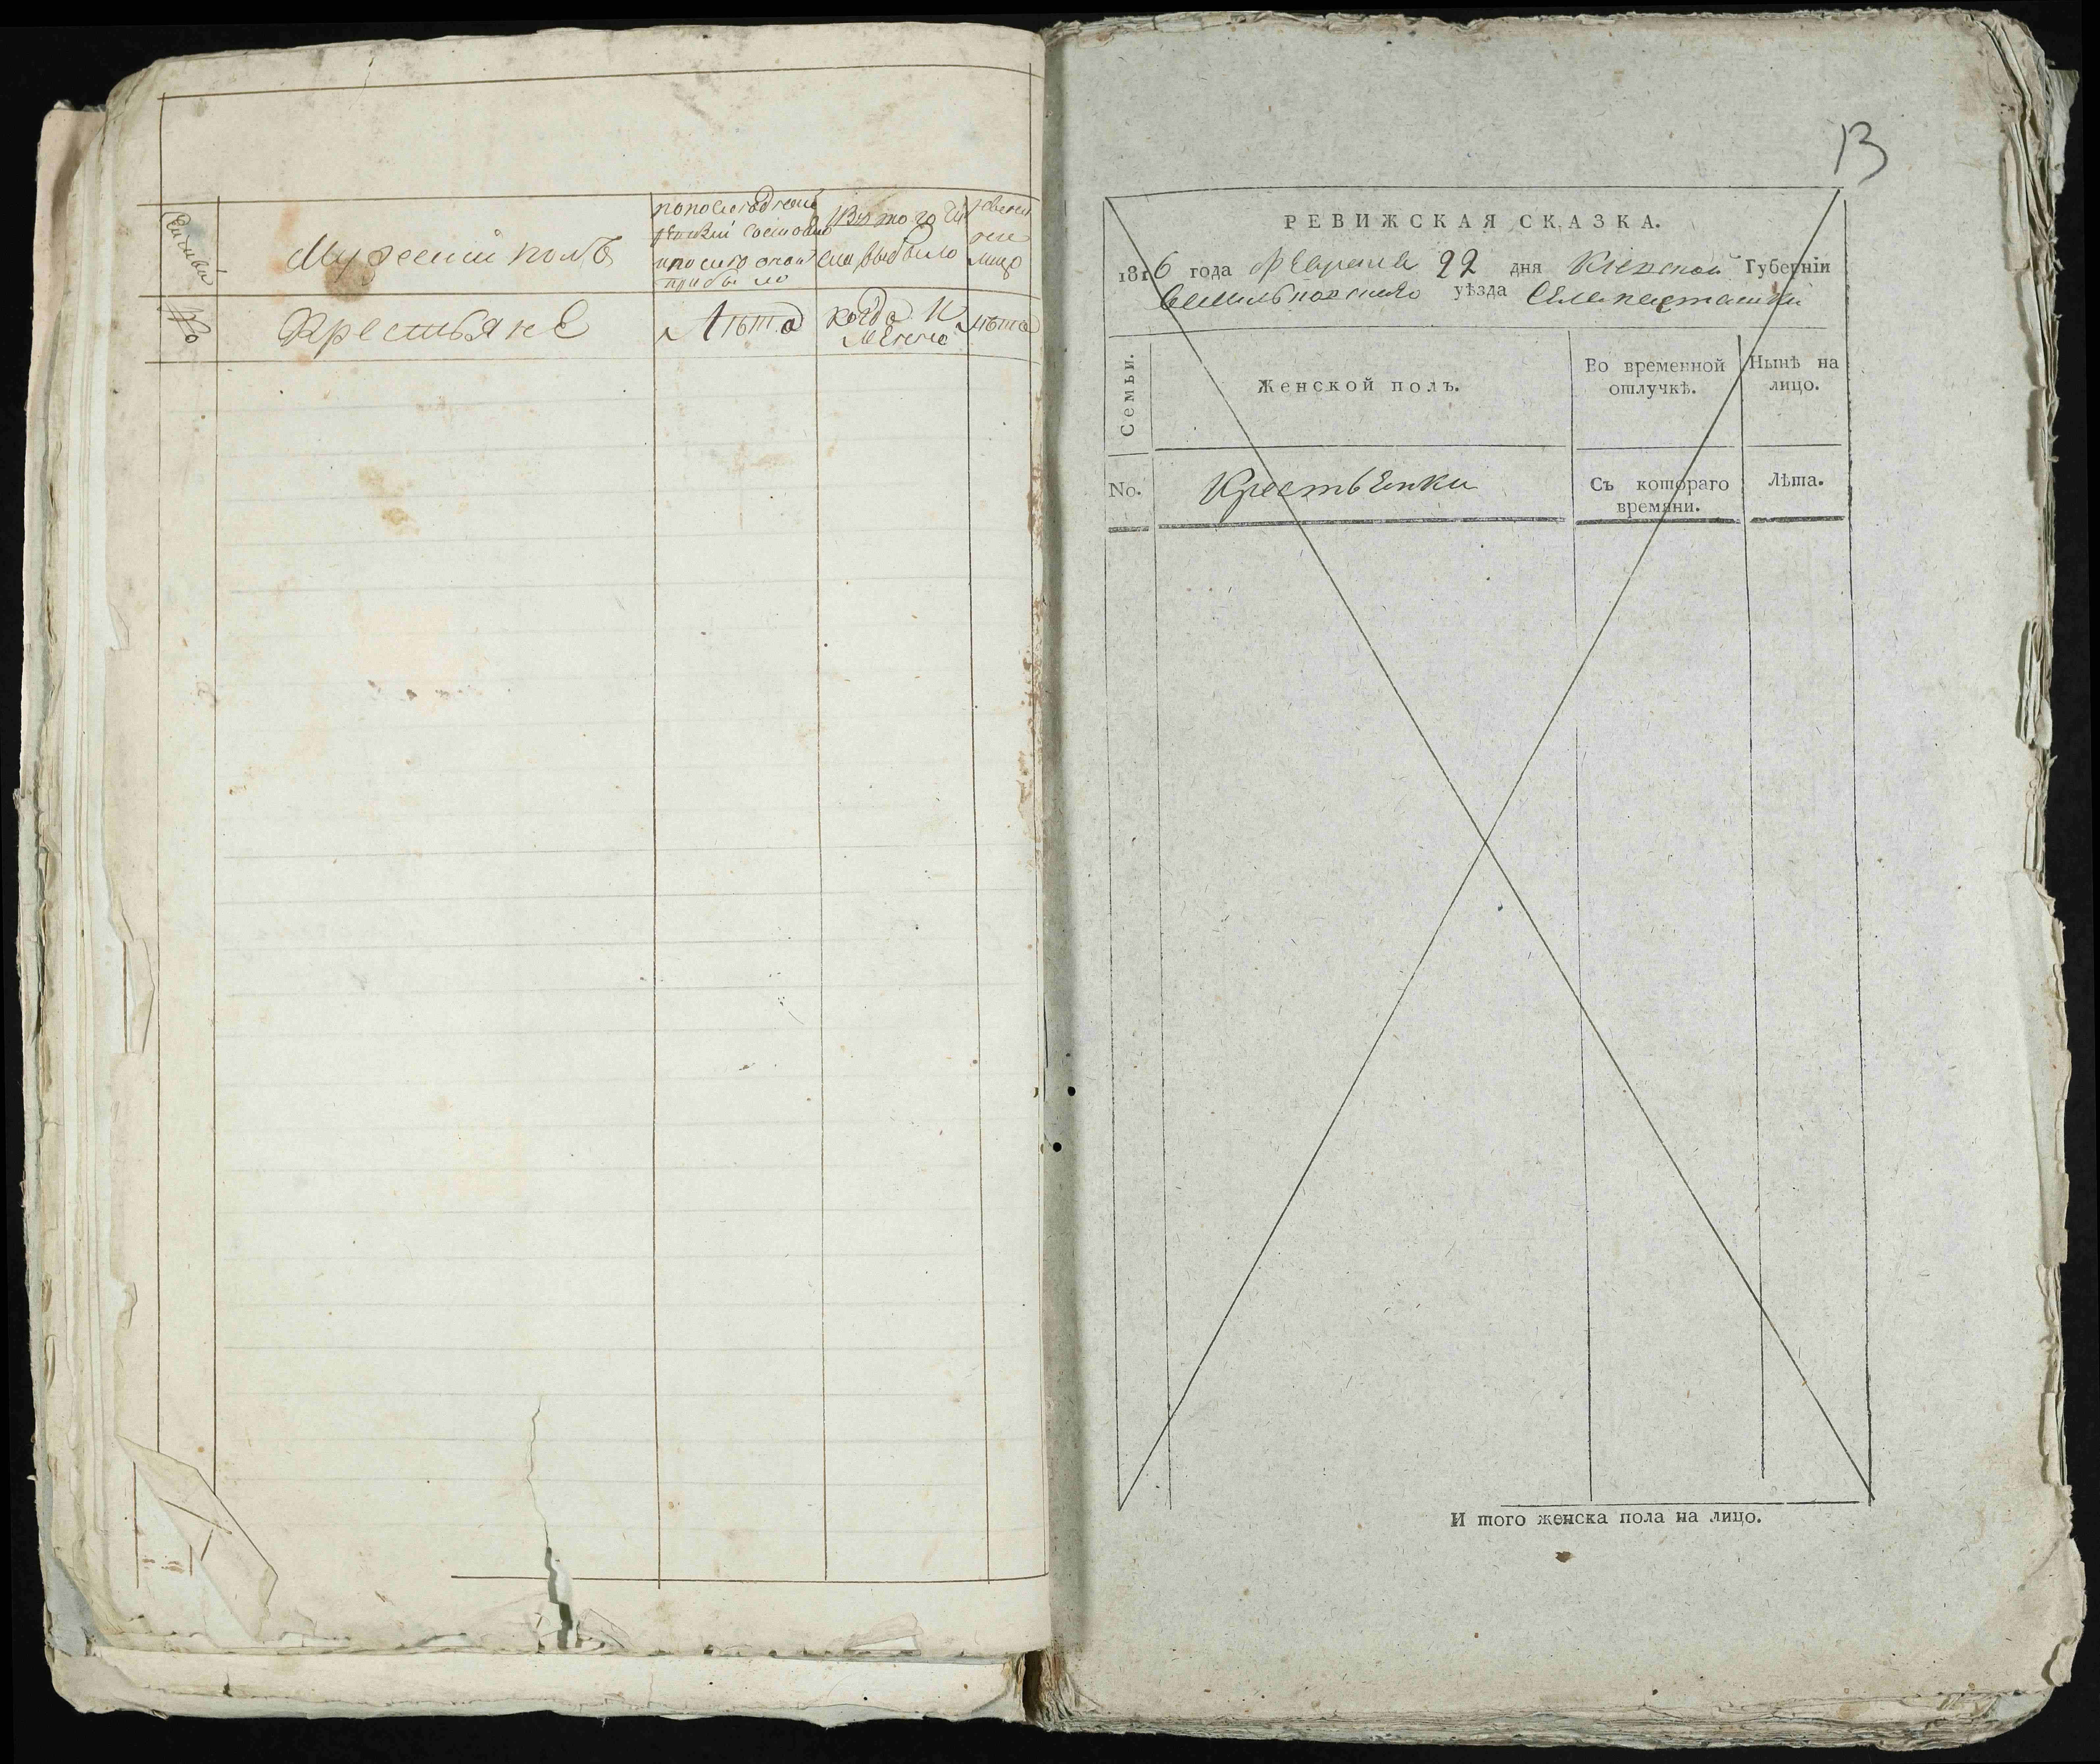 Мужеский полъ
по последней
ревизии состояло
и после оной
прибыло
Изъ того чи
сла выбыло
лицо
№
Крестьяне
Лѣта
когда и
Лѣта
13
РЕВИЖСКАЯ СКАЗКА.
1816 года Февраля 22 дня Кіевской Губерніи
уѣзда
Семьи.
Женской полъ.
Во временной
отлучкѣ.
Нынѣ на
лицо.
No.
Крестьенки
Съ котораго
времяни.
Лѣта.
И того женска пола на лицо.